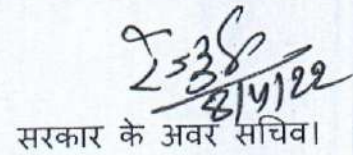 8/4/22
सरकार के अवर सचिव।